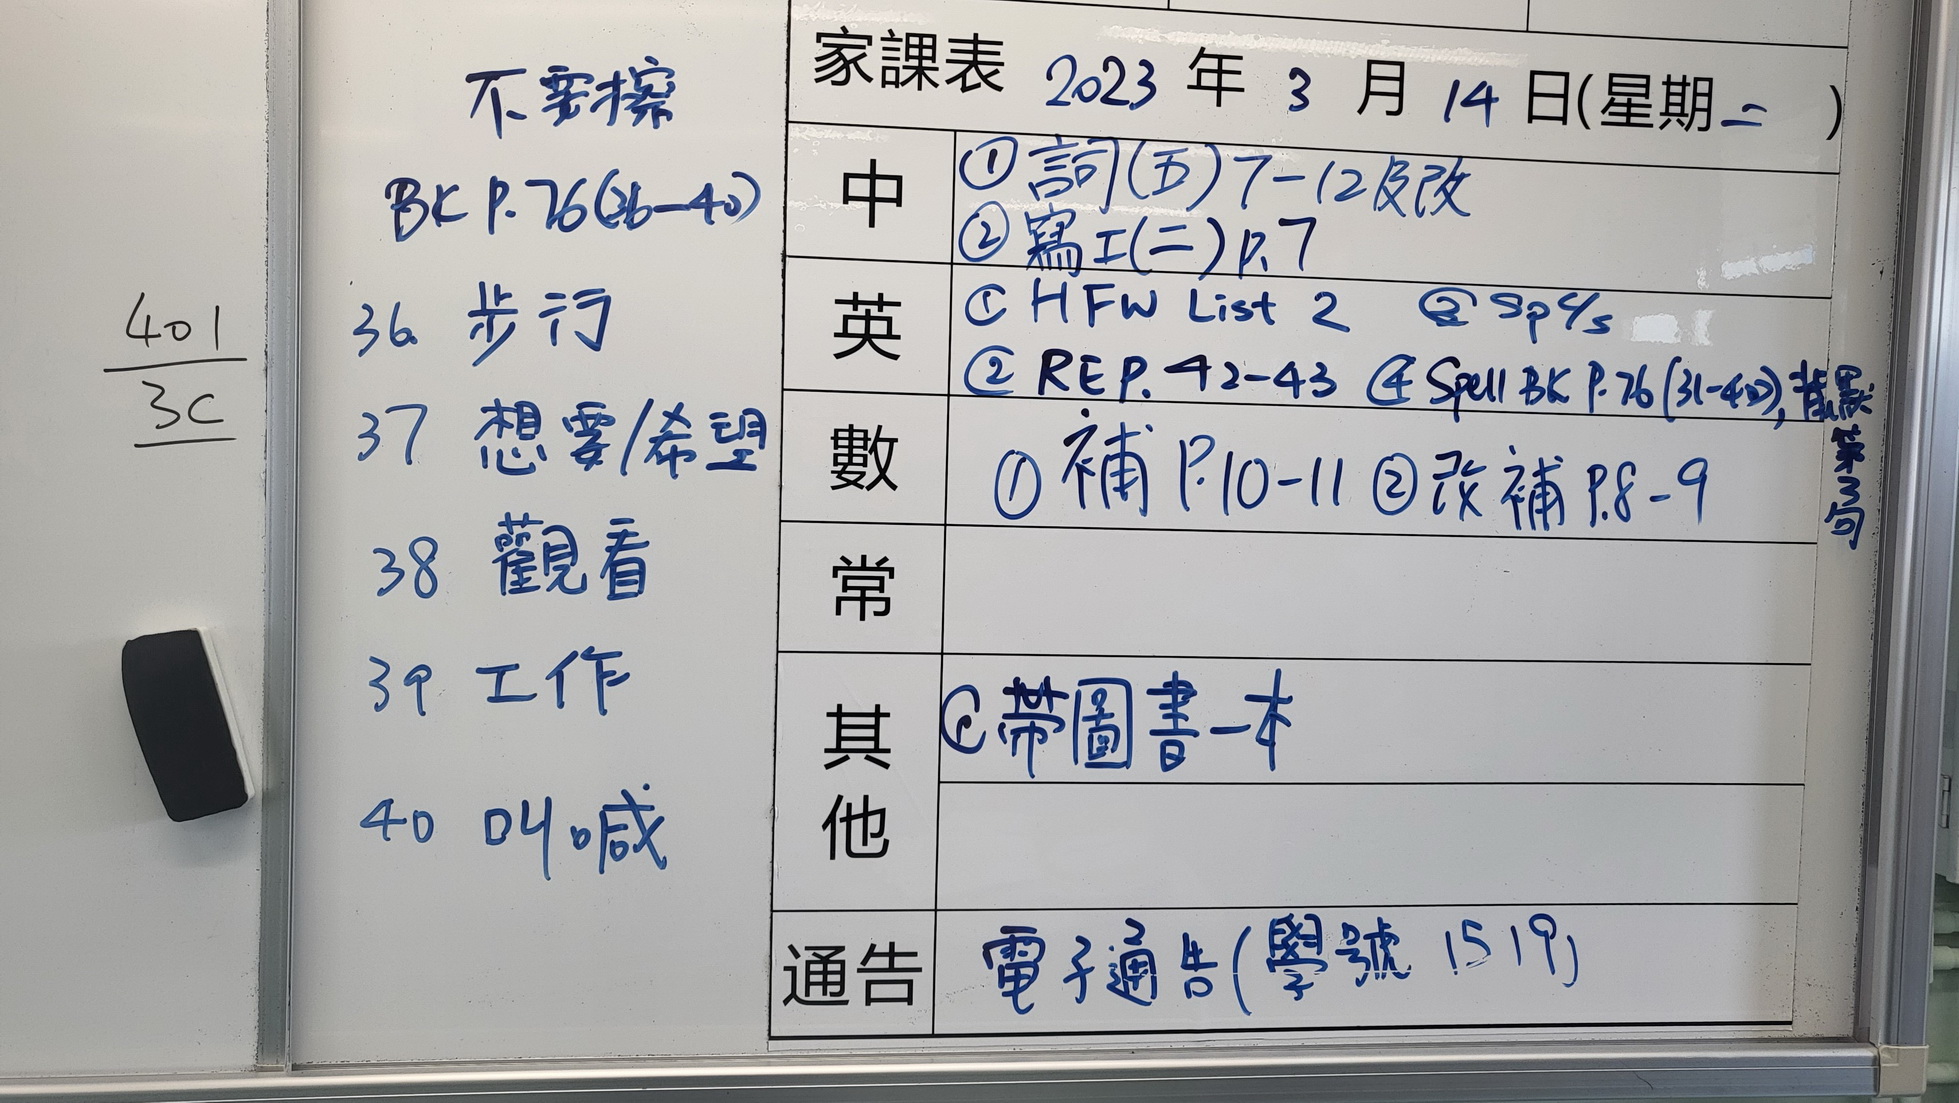 401
3C
不要擦
BK P.76(36-40)
36 步行
37 想要/希望
38 觀看
39 工作
40 叫喊
家課表 2023 年 3 月 14 日(星期二 )
中
① 詞(五)7-12及改
② 寫工(二)P.7
英
① HFW List 2 Sp4/s
② REP. 42-43 ④ Spell BK P.76(31-40), 背默
第3句
數
① 補 P.10-11 ② 改補 P.8-9
常
其他
① 帶圖書一本
通告
電子通告(學號 1519)